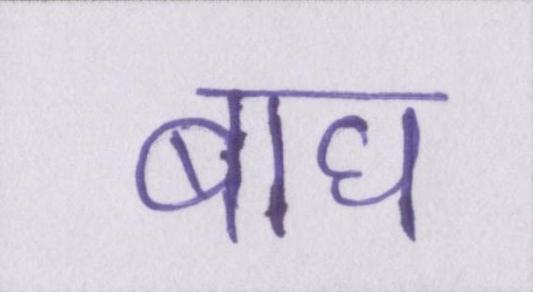 बाघ